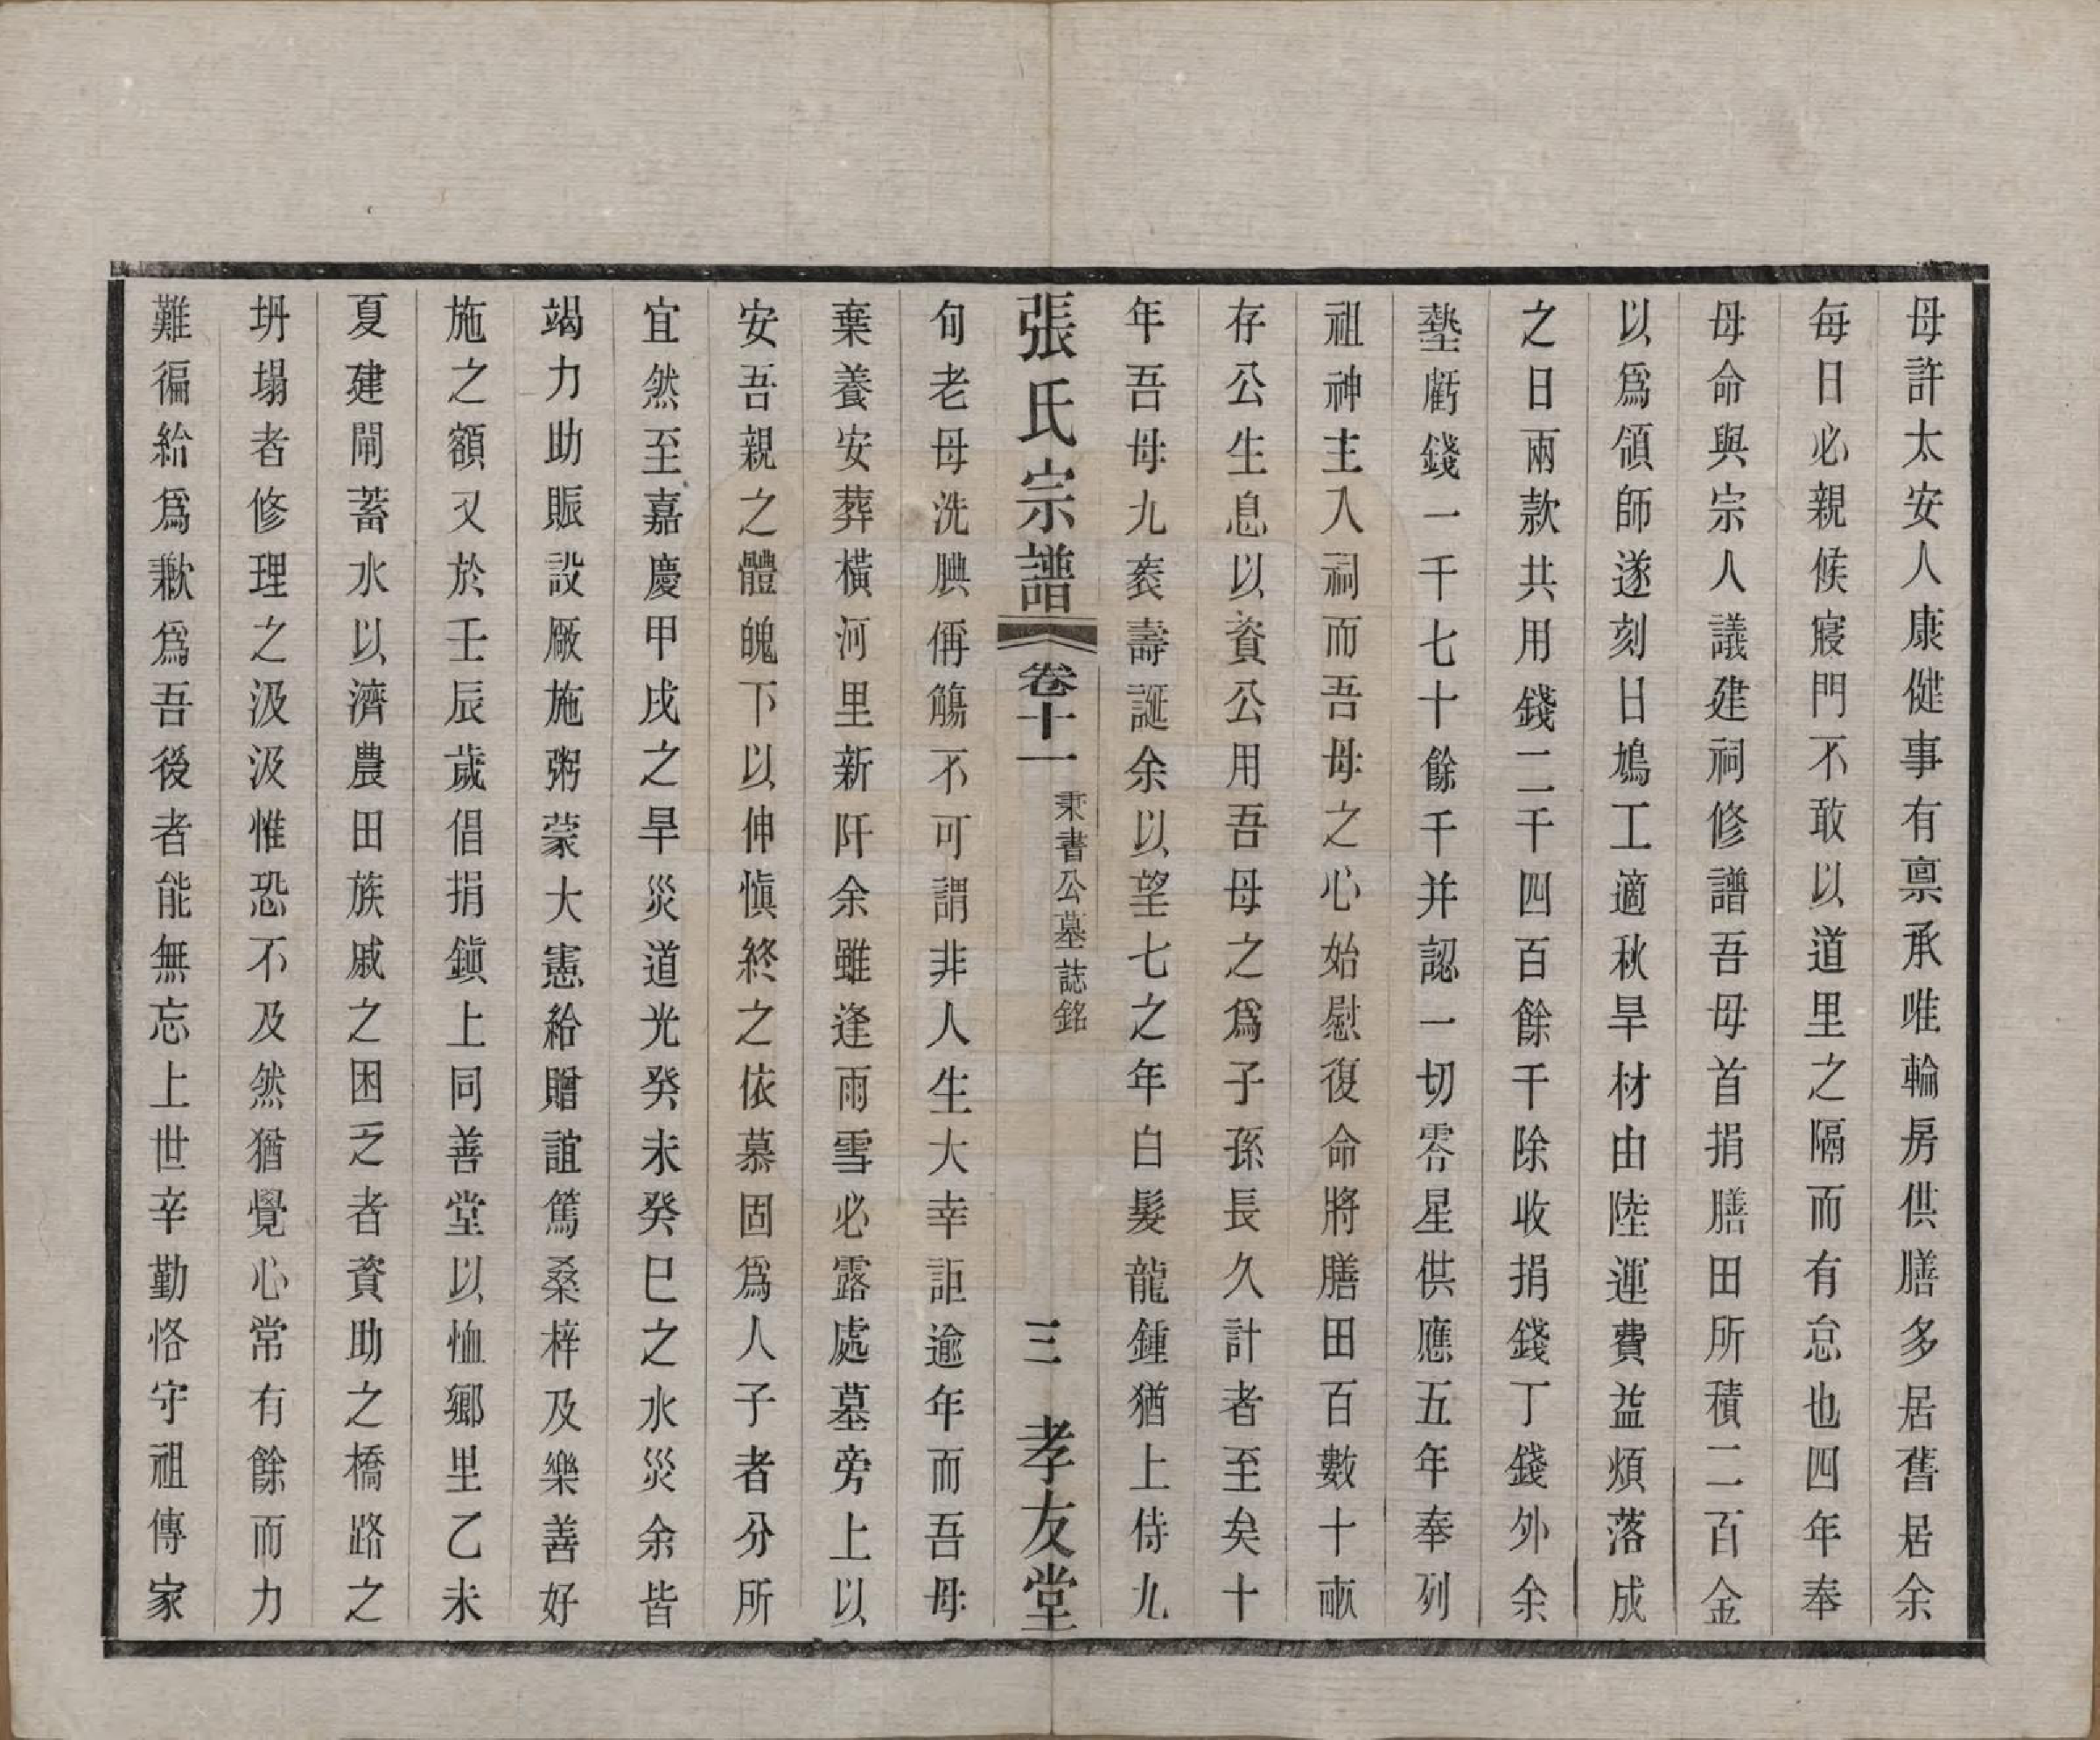 母許太安人康健事有禀承唯輪房供膳多居舊居余
每日必親候寢門不敢以道里之隔而有怠也四年奉
母命與宗人議建祠修譜吾母首捐膳田所積二百金
以爲領師遂刻日鳩工適秋旱材由陸運費益煩落成
之日兩款共用錢二千四百餘千除收捐錢丁錢外余
墊虧錢一千七十餘千并認一切零星供應五年奉列
祖神主入祠而吾母之心始慰復命將膳田百數十畝
存公生息以資公用吾母之爲子孫長久計者至矣十
年吾母九袠壽誕余以望七之年白髮龍鍾猶上侍九
張氏宗譜 卷十一 秉書公墓誌銘 三 孝友堂
旬老母洗腆偁觴不可謂非人生大幸詎逾年而吾母
棄養安葬橫河里新阡余雖逢雨雪必露處墓旁上以
安吾親之體魄下以伸愼終之依慕固爲人子者分所
宜然至嘉慶甲戌之旱災道光癸未癸巳之水災余皆
竭力助賑設厰施粥蒙大憲給贈誼篤桑梓及樂善好
施之額又於壬辰歲倡捐鎭上同善堂以恤鄉里乙未
夏建閘蓄水以濟農田族戚之困乏者資助之橋路之
坍塌者修理之汲汲惟恐不及然猶覺心常有餘而力
難徧給爲歉爲吾後者能無忘上世辛勤恪守祖傳家